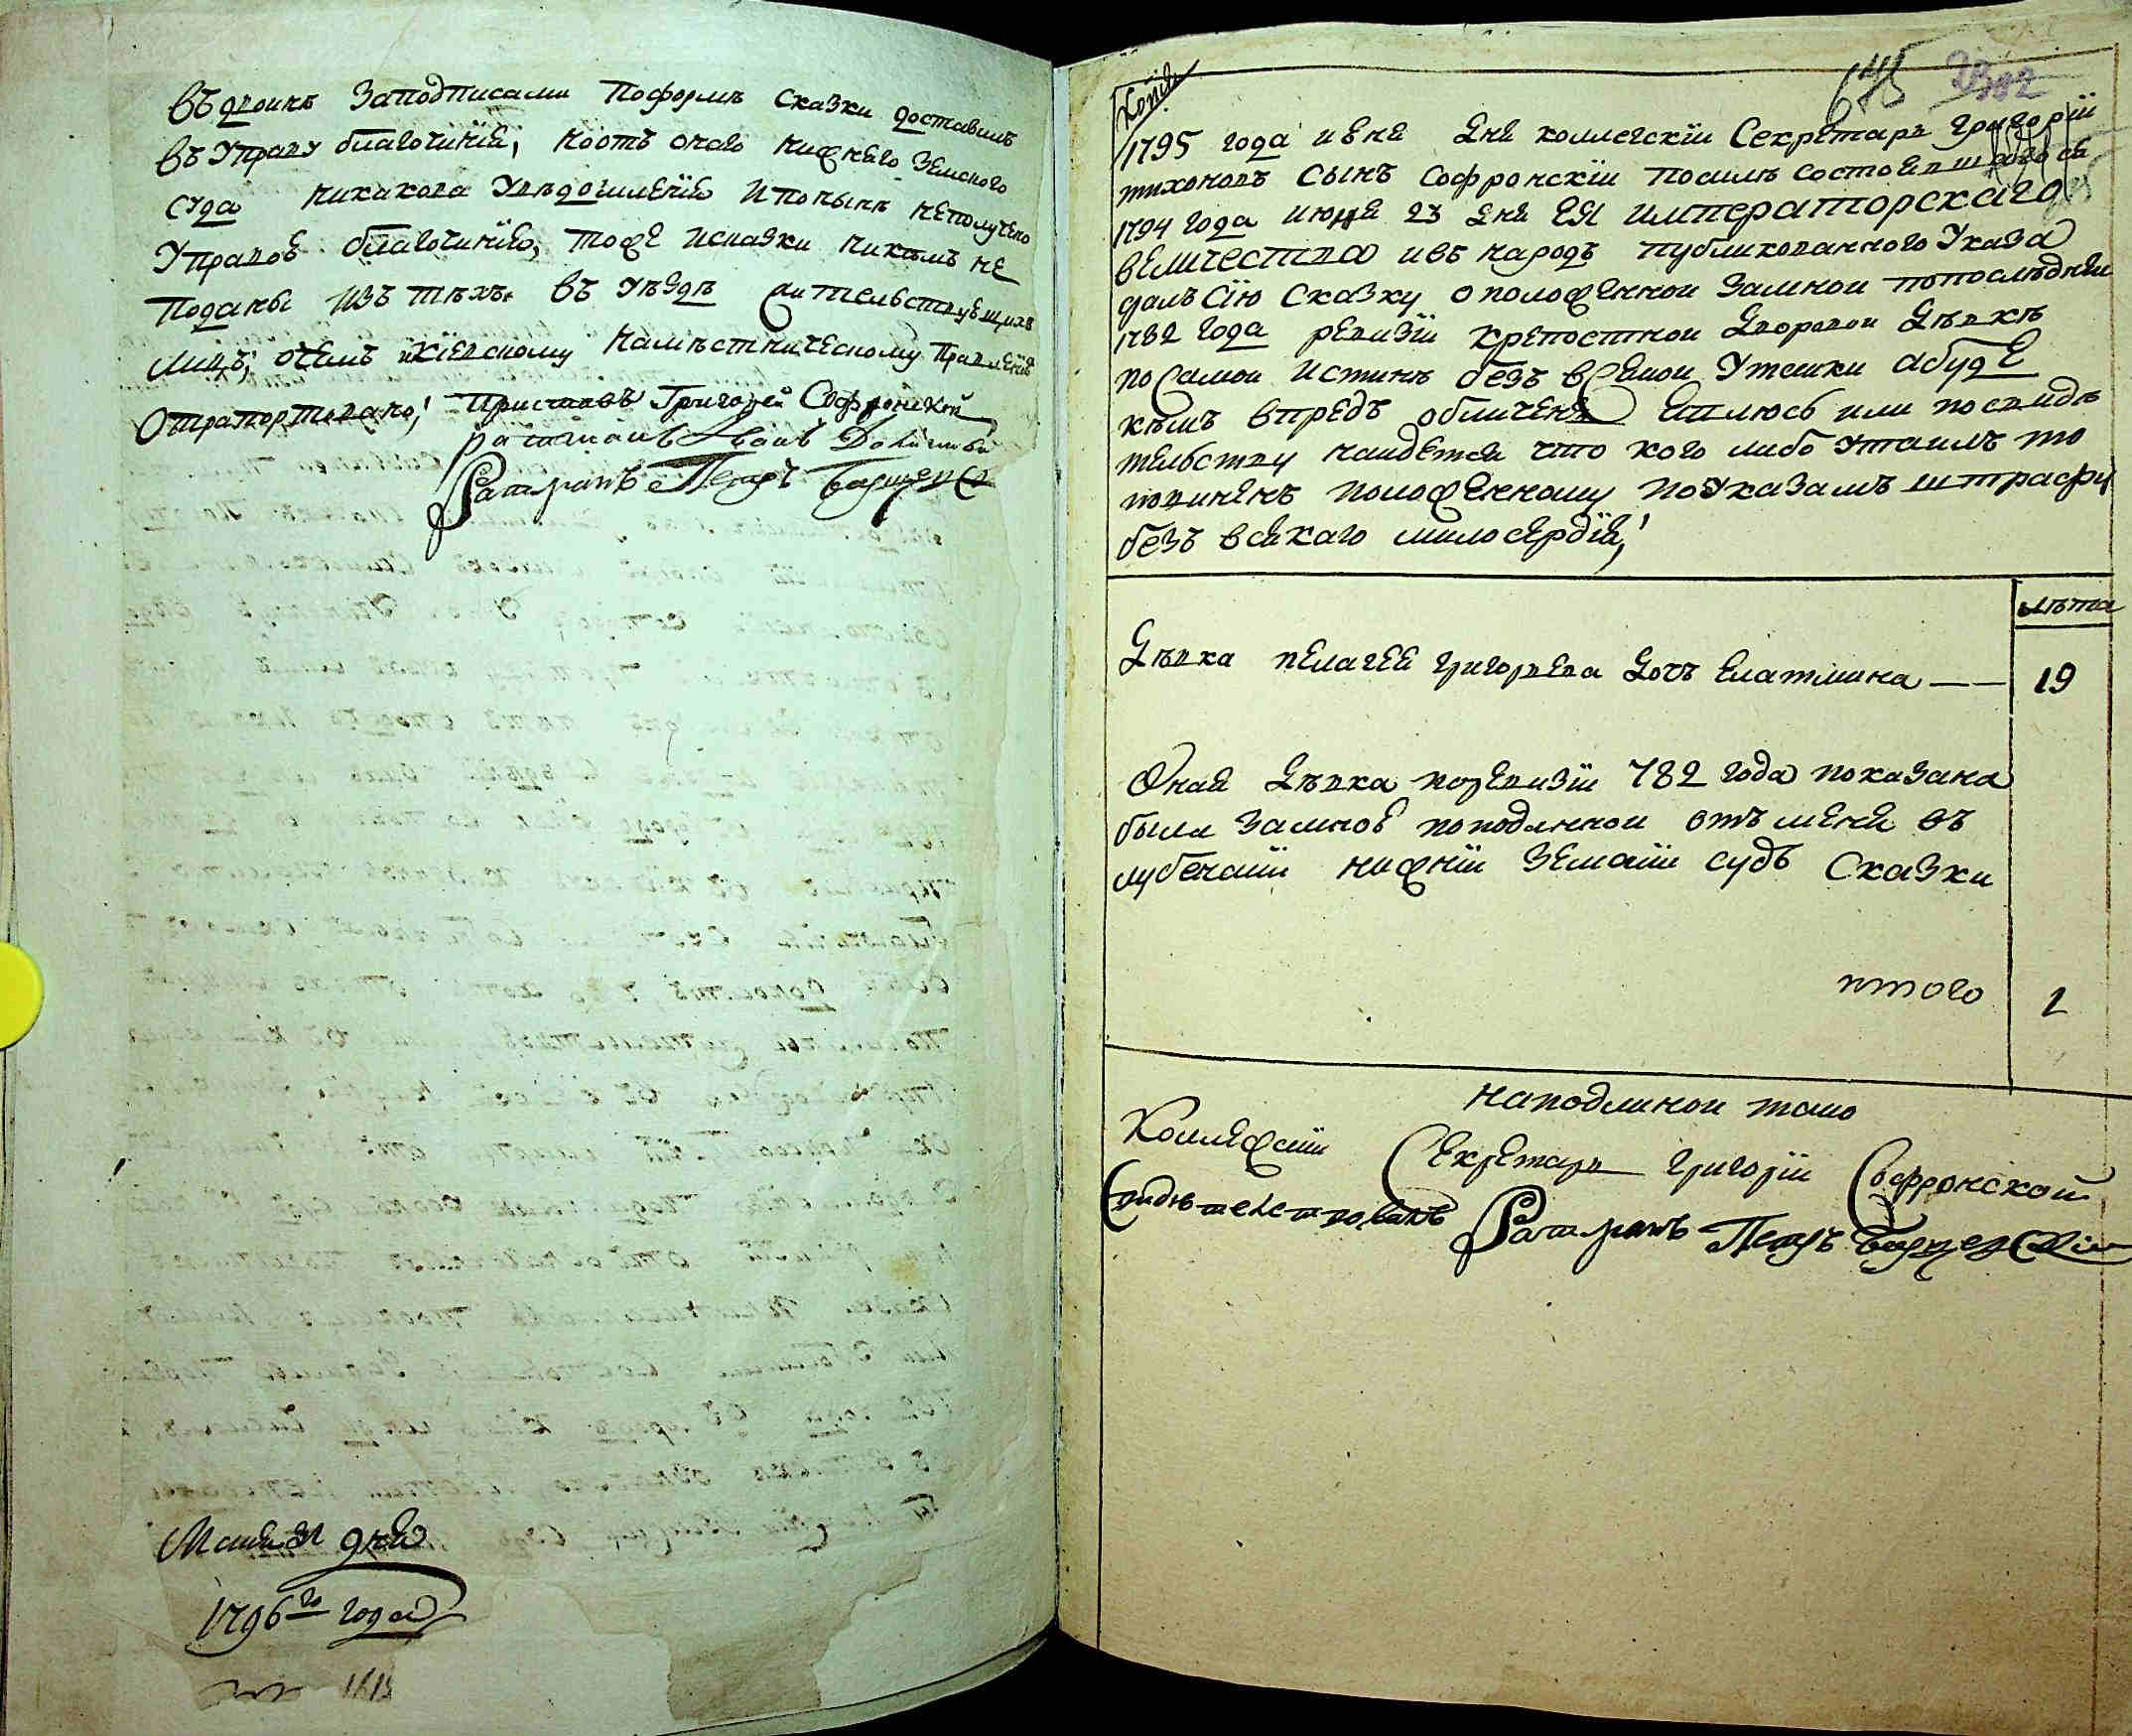 въ двоинѣ заподписами поформѣ сказки доставилъ
въ Управу благочинїя, ноотъ онаго нижнего Земского
суда никакова Увѣдомленїя ипонынѣ неполучено
Управою благочинїя, тоже исказки никѣмъ не
поданы изъ тѣхъ въ уѣздѣ жителствующихъ
лицъ, очемъ икїевскому намѣстническому правленїю
отрапортовано,
Приставъ Григорей Софронской
ратманъ Іванъ
Ратманъ Петръ
Маия 31 дня
1796го года
1615
Копія
645
2382
1795 года июня дня коллегскїи Секретарь григорїи
тихоновъ сынъ Софронскїи посилѣ состоявшагося
1794 года июня 23 дня ЕЯ императорскаго
величества ивъ народъ публикованного Указа
далъ сїю сказку оположеннои замною попоследнеи
1782 года ревизїи крепостнои дворовои девкѣ
посамои истиннѣ безъ всякои Утаики абуде
кѣмъ впредь обличенъ явлюсь или посвидѣ
телству наидется что кого либо утаилъ то
повиненъ положенному поуказамъ штрафу
безъ всякаго милосердїя,
лѣта
Дѣвка пелагея григорьева дочь Елатмина — — 19
Оная дѣвка поревизїи 782 года показана
была замною поподаннои отъ меня въ
лубенскїи нижнїи земскїи судъ Сказки
итого 1
наподлинои тако
Коллежскїи Секретарь григорїи Софронскои
Свидѣтелствовалъ Ратманъ Петръ